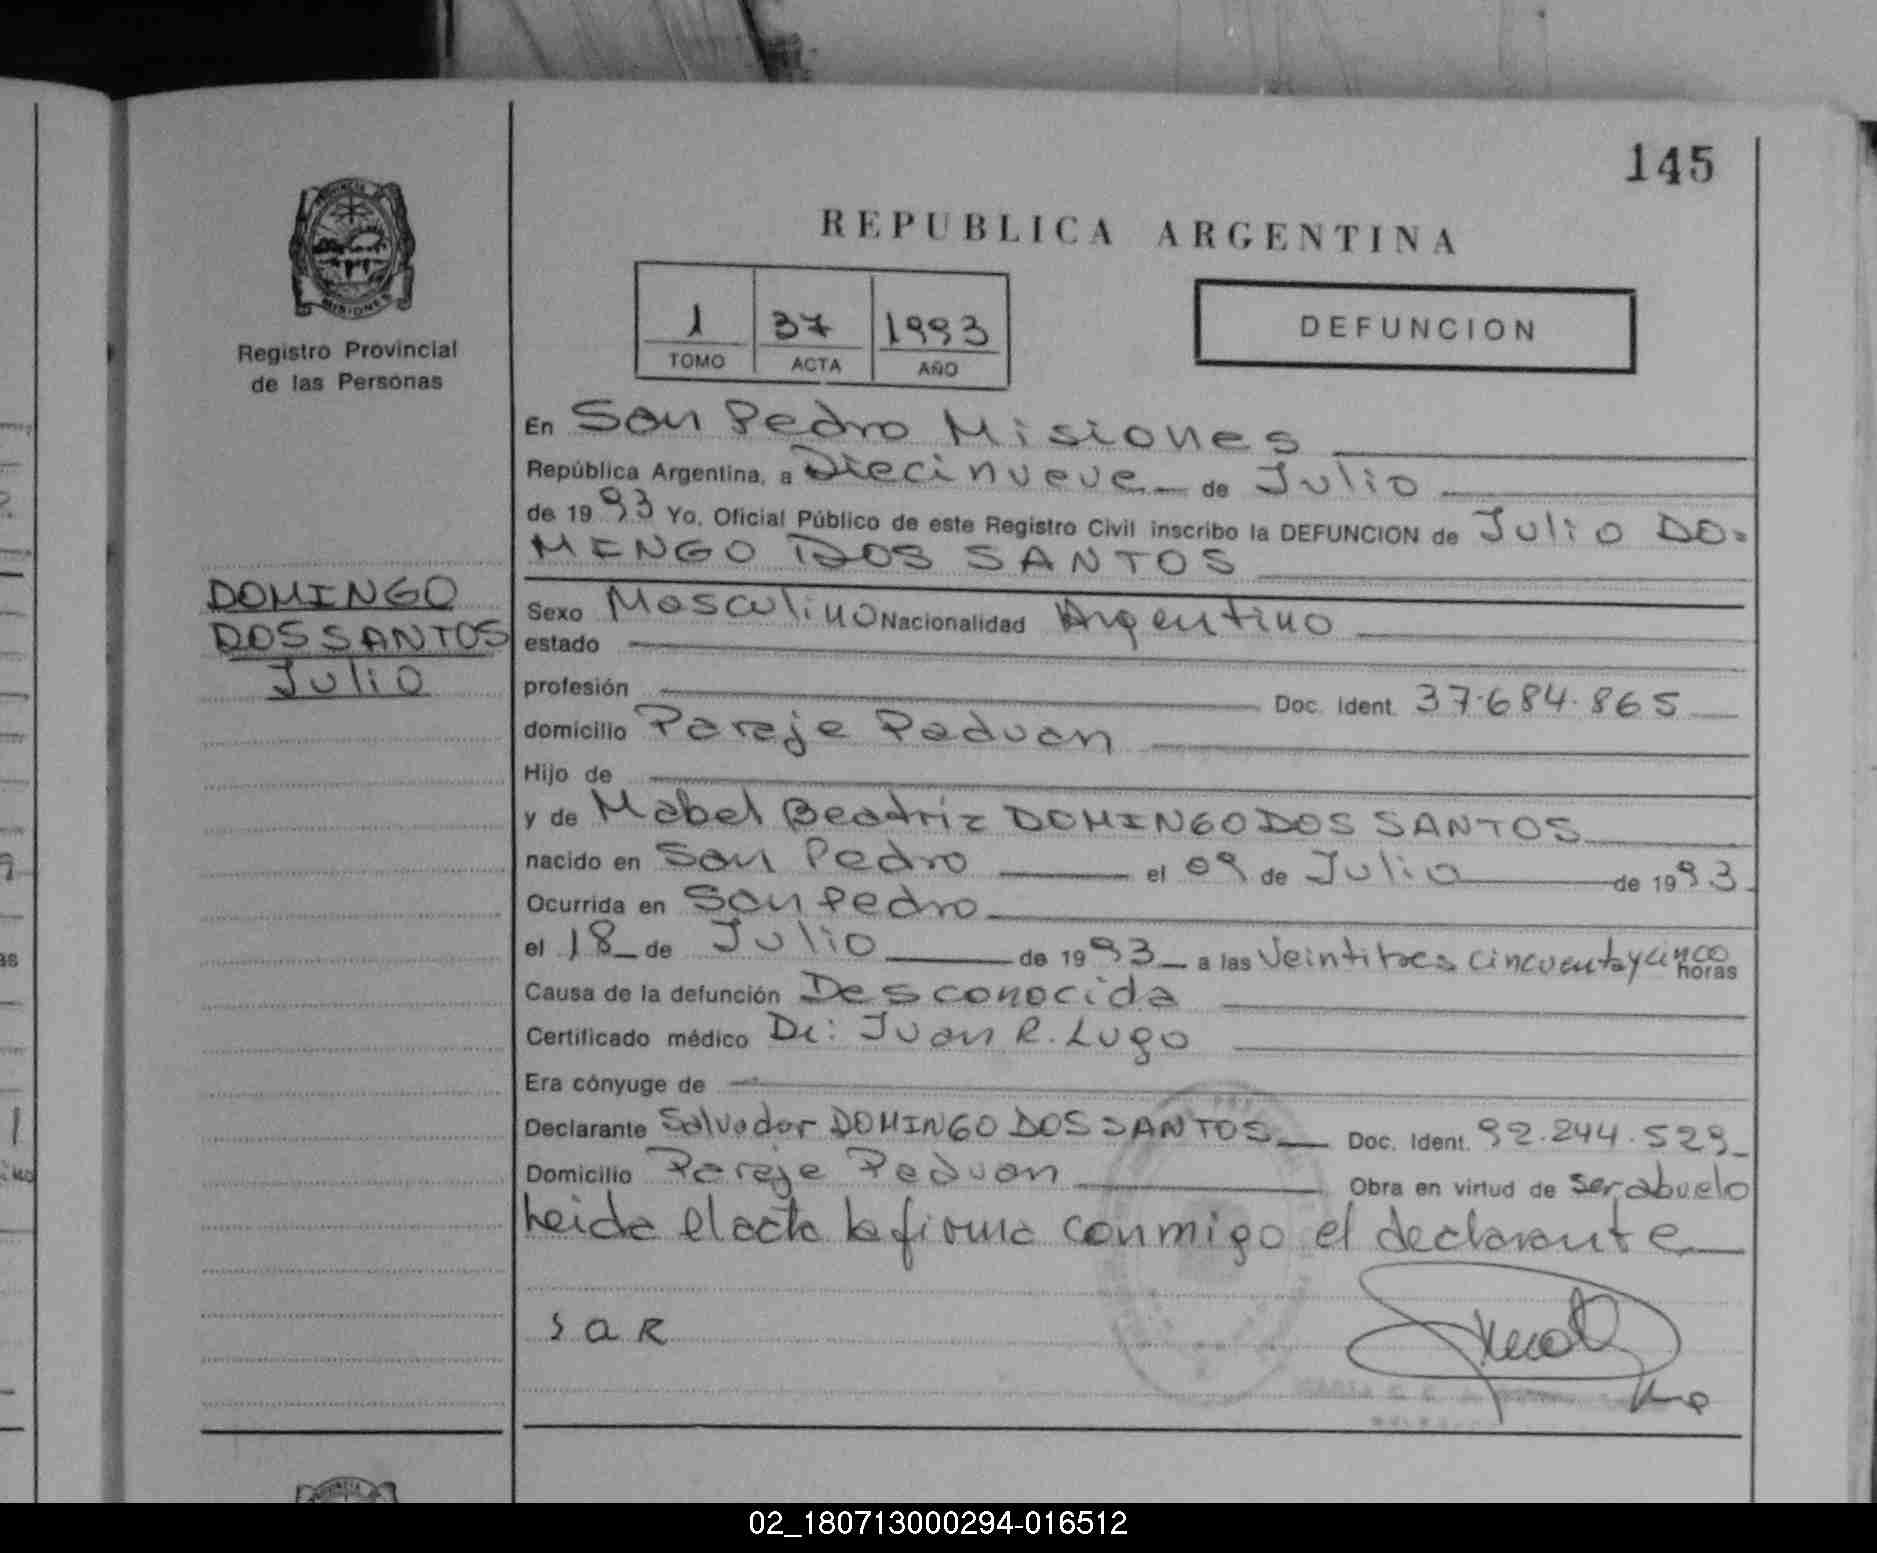 145
REPUBLICA ARGENTINA
PROVINCIA DE
MISIONES
Registro Provincial
de las Personas
1 37 1993
TOMO ACTA AÑO
DEFUNCION
En San Pedro Misiones
República Argentina, a Diecinueve de Julio
de 1993 Yo, Oficial Público de este Registro Civil inscribo la DEFUNCION de Julio DO-
MINGO DOS SANTOS
DOMINGO
DOS SANTOS
Julio
Sexo Masculino Nacionalidad Argentino
estado
profesión Doc. Ident. 37.684.865
domicilio Paraje Paduan
Hijo de
y de Mabel Beatriz DOMINGO DOS SANTOS
nacido en San Pedro el 09 de Julio de 1993
Ocurrida en San Pedro
el 18 de Julio de 1993 a las Veintitres cincuentaycinco horas
Causa de la defunción Desconocida
Certificado médico Dr: Juan R. Lugo
Era cónyuge de
Declarante Salvador DOMINGO DOS SANTOS Doc. Ident. 92.244.529
Domicilio Paraje Paduan Obra en virtud de ser abuelo
Leida el acta la firma conmigo el declarante
S a R
02_180713000294-016512